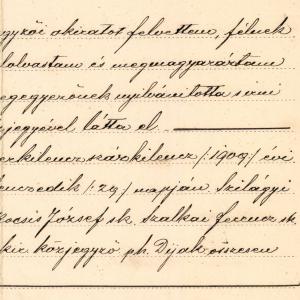 gyzői okiratot felvettem, félnek
lolvastam és megmagyaráztam
egegyezőnek nyilvánította s irni
zjegyével látta el.
erkilencszázkilencz /:1909:/ évi
lenczedik /:29:/ napján. Szilágyi
kocsis József sk. Szalkai Ferencz sk.
kir közjegyző ph. Díjak összesen